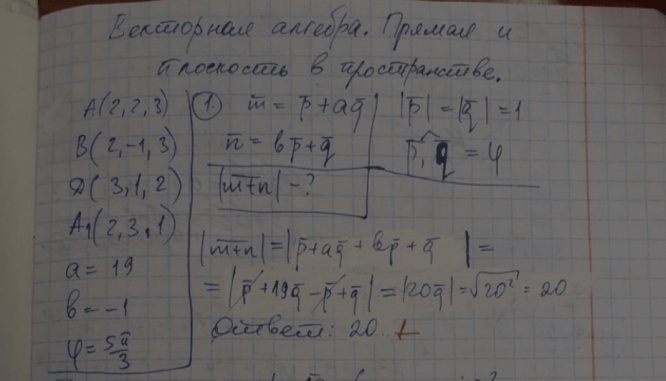 Векторная алгебра. Прямая и
плоскость в пространстве.
A(2,2,3)
B(2,-1,3)
D(3,1,2)
A₁(2,3,1)
a = 19
b = -1
φ = 5π/3
1. m̄ = p̄ + aq̄
n̄ = bp̄ + q̄
|m̄+n̄| - ?
|p̄| = |q̄| = 1
p̄, q̄ = φ
|m̄+n̄| = |p̄+aq̄ + bp̄ + q̄| =
= |p̄ + 19q̄ - p̄ + q̄| = |20q̄| = √20² = 20
Ответ: 20. +